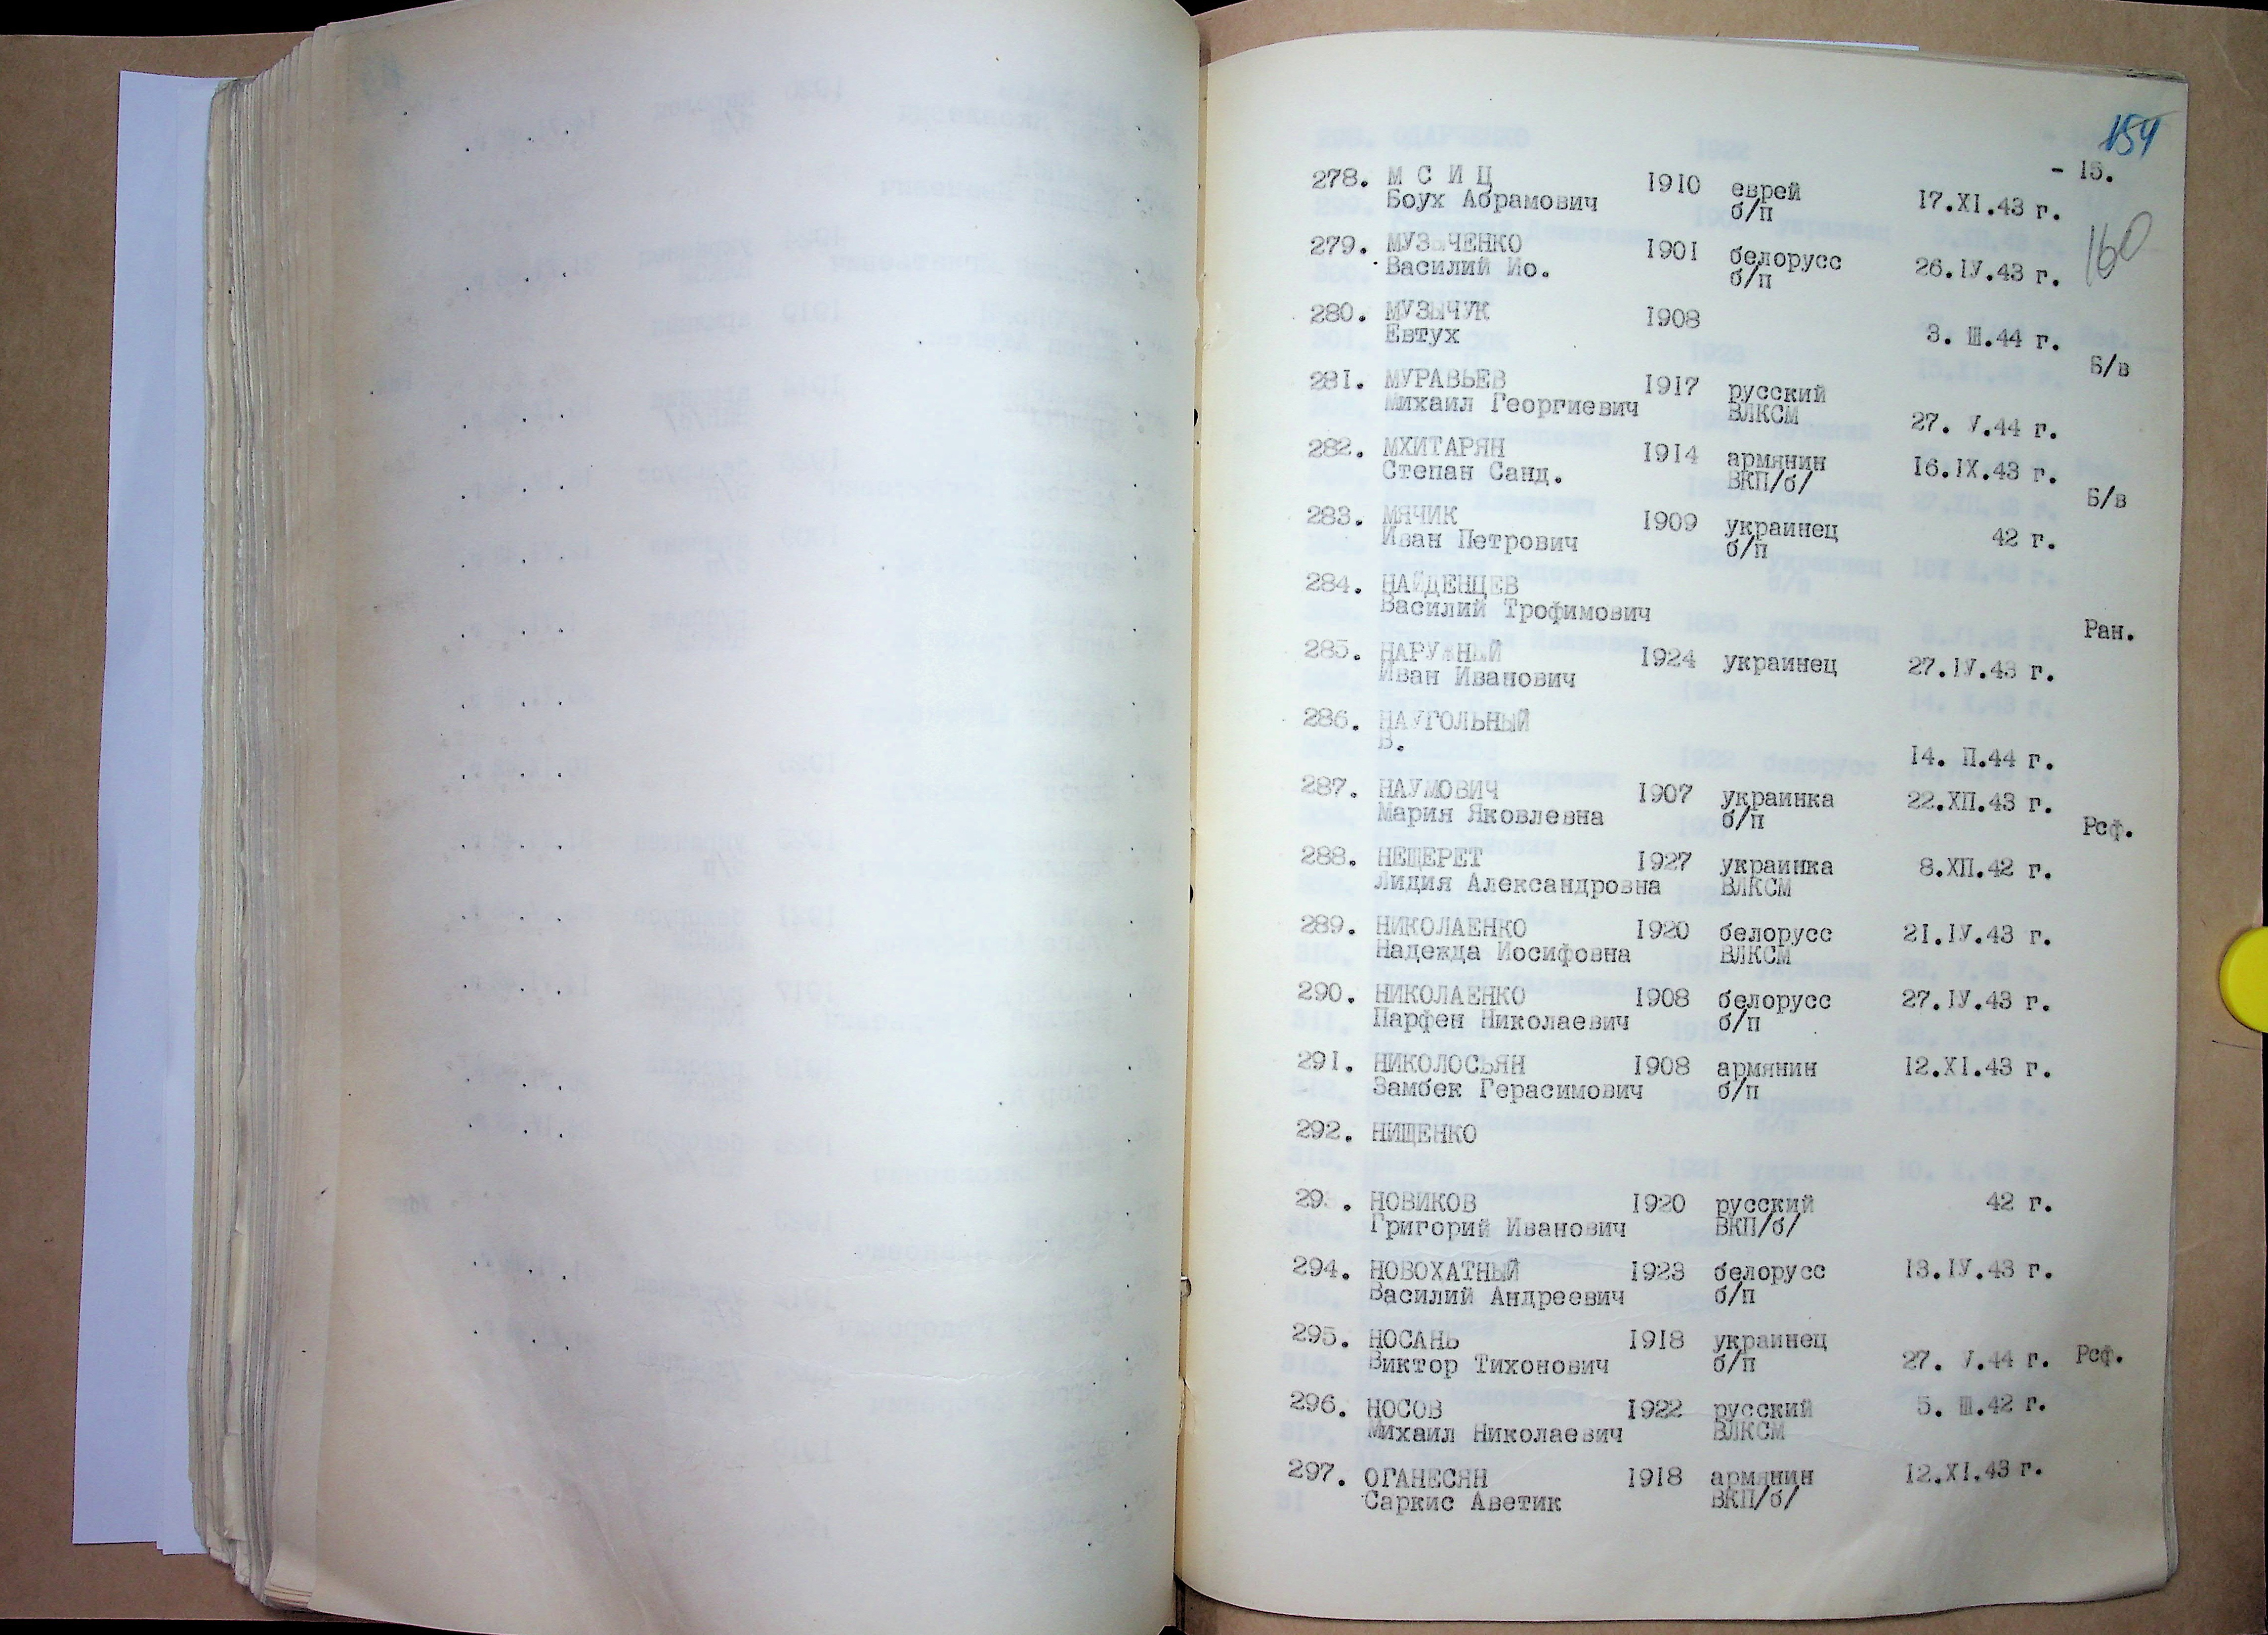 154
- 15.
278. М С И Ц 1910 еврей
Боух Абрамович б/п 17.XI.43 г.
160
279. МУЗЫЧЕНКО 1901 белорусс
Василий Ио. б/п 26.IУ.43 г.
280. МУЗЫЧУК 1908
Евтух 3. Ш.44 г.
Б/в
281. МУРАВЬЕВ 1917 русский
Михаил Георгиевич ВЛКСМ 27. У.44 г.
282. МХИТАРЯН 1914 армянин 16.IX.43 г.
Степан Санд. ВКП/б/
Б/в
283. МЯЧИК 1909 украинец 42 г.
Иван Петрович б/п
284. НАЙДЕНЦЕВ
Василий Трофимович
Ран.
285. НАРУЖНЫЙ 1924 украинец 27.IУ.43 г.
Иван Иванович
286. НАУГОЛЬНЫЙ
В. 14. П.44 г.
287. НАУМОВИЧ 1907 украинка 22.ХП.43 г.
Мария Яковлевна б/п
Рсф.
288. НЕЩЕРЕТ 1927 украинка 8.ХП.42 г.
Лидия Александровна ВЛКСМ
289. НИКОЛАЕНКО 1920 белорусс 21.IУ.43 г.
Надежда Иосифовна ВЛКСМ
290. НИКОЛАЕНКО 1908 белорусс 27.IУ.43 г.
Парфен Николаевич б/п
291. НИКОЛОСЬЯН 1908 армянин 12.XI.43 г.
Замбек Герасимович б/п
292. НИЩЕНКО
29 . НОВИКОВ 1920 русский 42 г.
Григорий Иванович ВКП/б/
294. НОВОХАТНЫЙ 1923 белорусс 13.IУ.43 г.
Василий Андреевич б/п
295. НОСАНЬ 1918 украинец
Виктор Тихонович б/п 27. У.44 г. Рсф.
296. НОСОВ 1922 русский 5. Ш.42 г.
Михаил Николаевич ВЛКСМ
297. ОГАНЕСЯН 1918 армянин 12.XI.43 г.
Саркис Аветик ВКП/б/